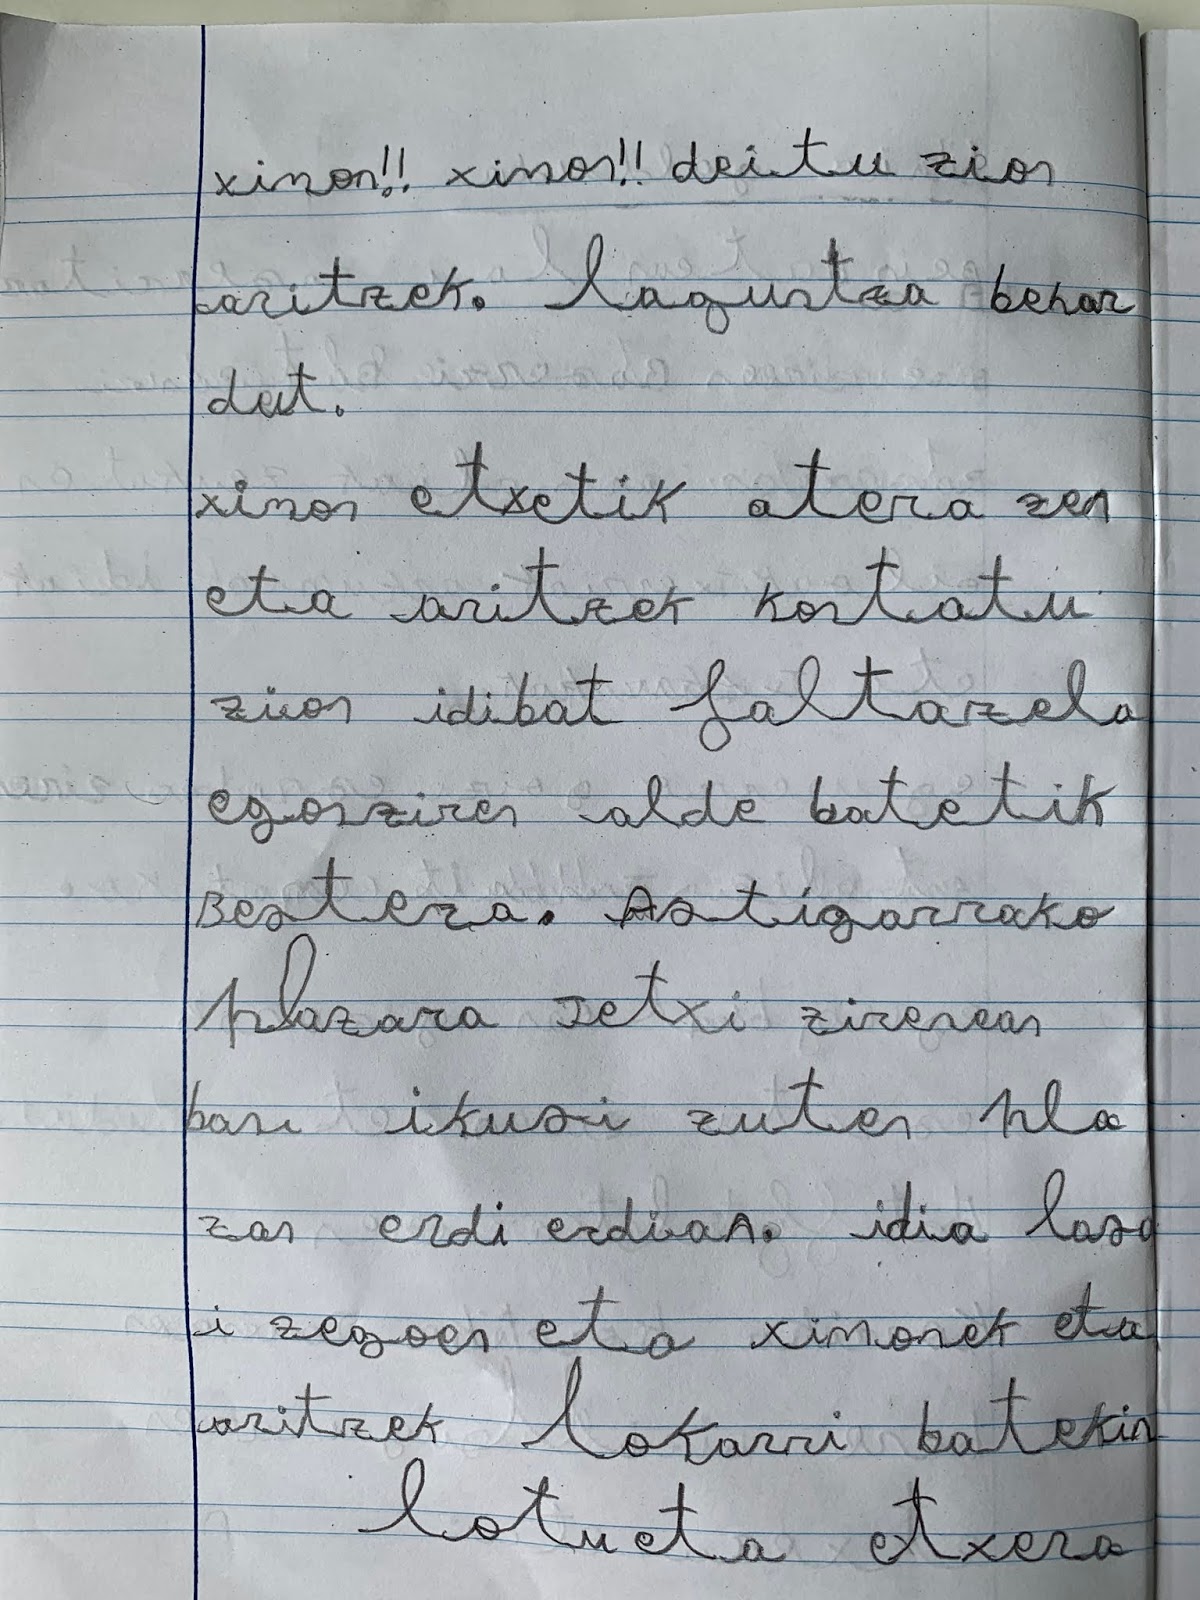 ximon!! ximon!! deitu zion
aritzek. laguntza behar
dut.
ximon etxetik atera zen
eta aritzek kontatu
zion idibat faltazela
egonziren alde batetik
Bestera. Astigarrako
plazara Jetxi zirenean
ban ikusi zuten pla
zan erdi erdian. idia lasa
i zegoen eta ximonek eta
aritzek lokarri batekin
lotueta etxera